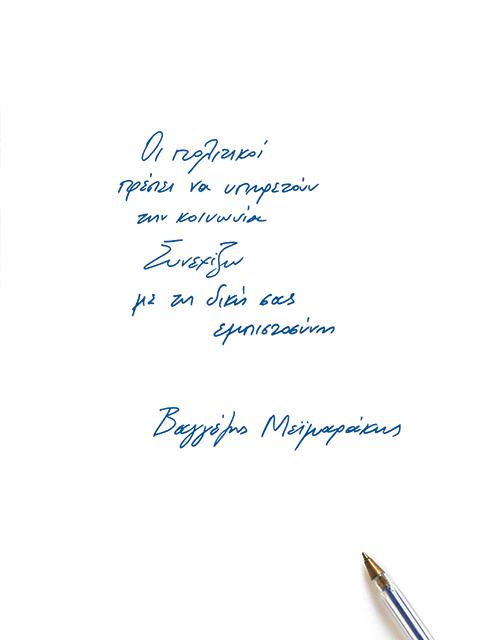 Οι πολιτικοί
πρέπει να υπηρετούν
την κοινωνία
Συνεχίζω
με τη δική σας
εμπιστοσύνη
Βαγγέλης Μεϊμαράκης